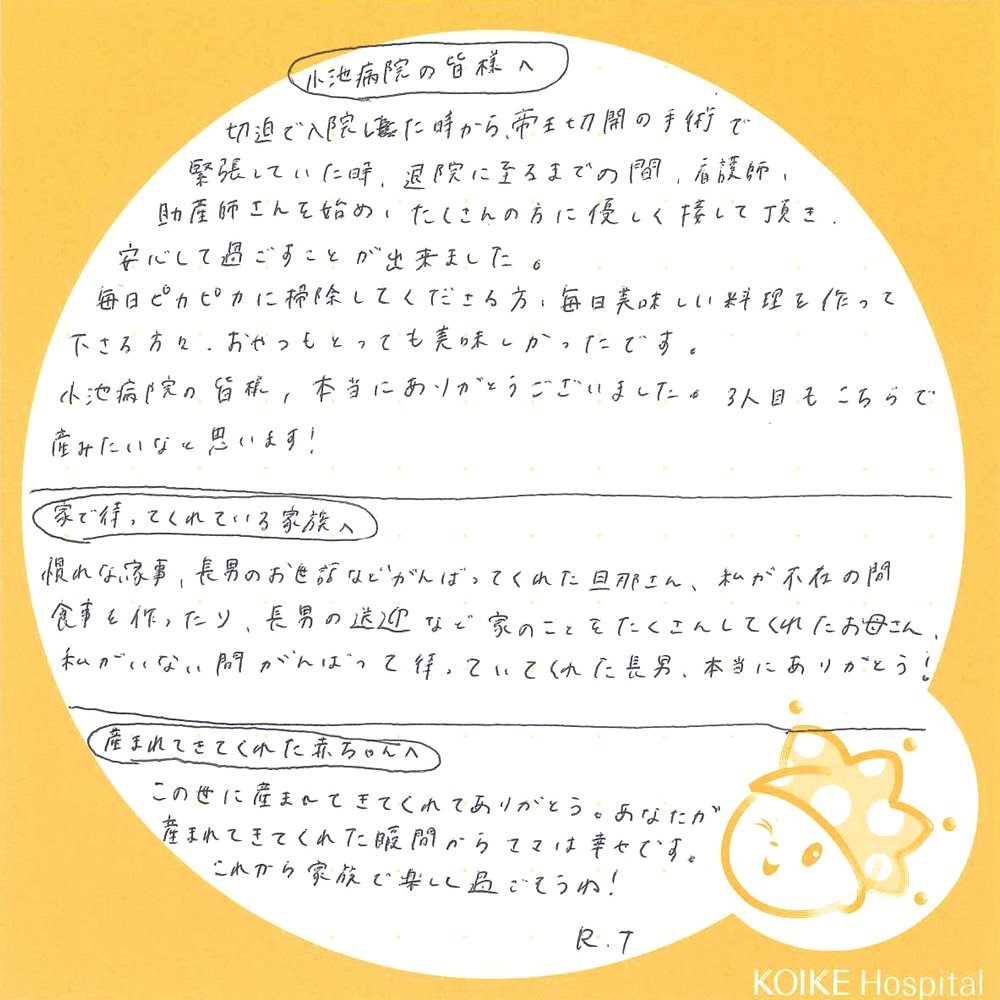 小池病院の皆様へ
切迫で入院した時から、帝王切開の手術で
緊張していた時、退院に至るまでの間、看護師、
助産師さんを始め、たくさんの方に優しく接して頂き、
安心して過ごすことが出来ました。
毎日ピカピカに掃除してくださる方、毎日美味しい料理を作って
下さる方々、おやつもとっても美味しかったです。
小池病院の皆様、本当にありがとうございました。3人目もこちらで
産みたいなと思います！
家で待ってくれている家族へ
慣れない家事、長男のお世話などがんばってくれた旦那さん、私が不在の間
食事を作ったり、長男の送迎など家のことをたくさんしてくれたお母さん、
私がいない間がんばって待っていてくれた長男、本当にありがとう！
産まれてきてくれた赤ちゃんへ
この世に産まれてきてくれてありがとう。あなたが
産まれてきてくれた瞬間からママは幸せです。
これから家族で楽しく過ごそうね！
R.T
KOIKE Hospital